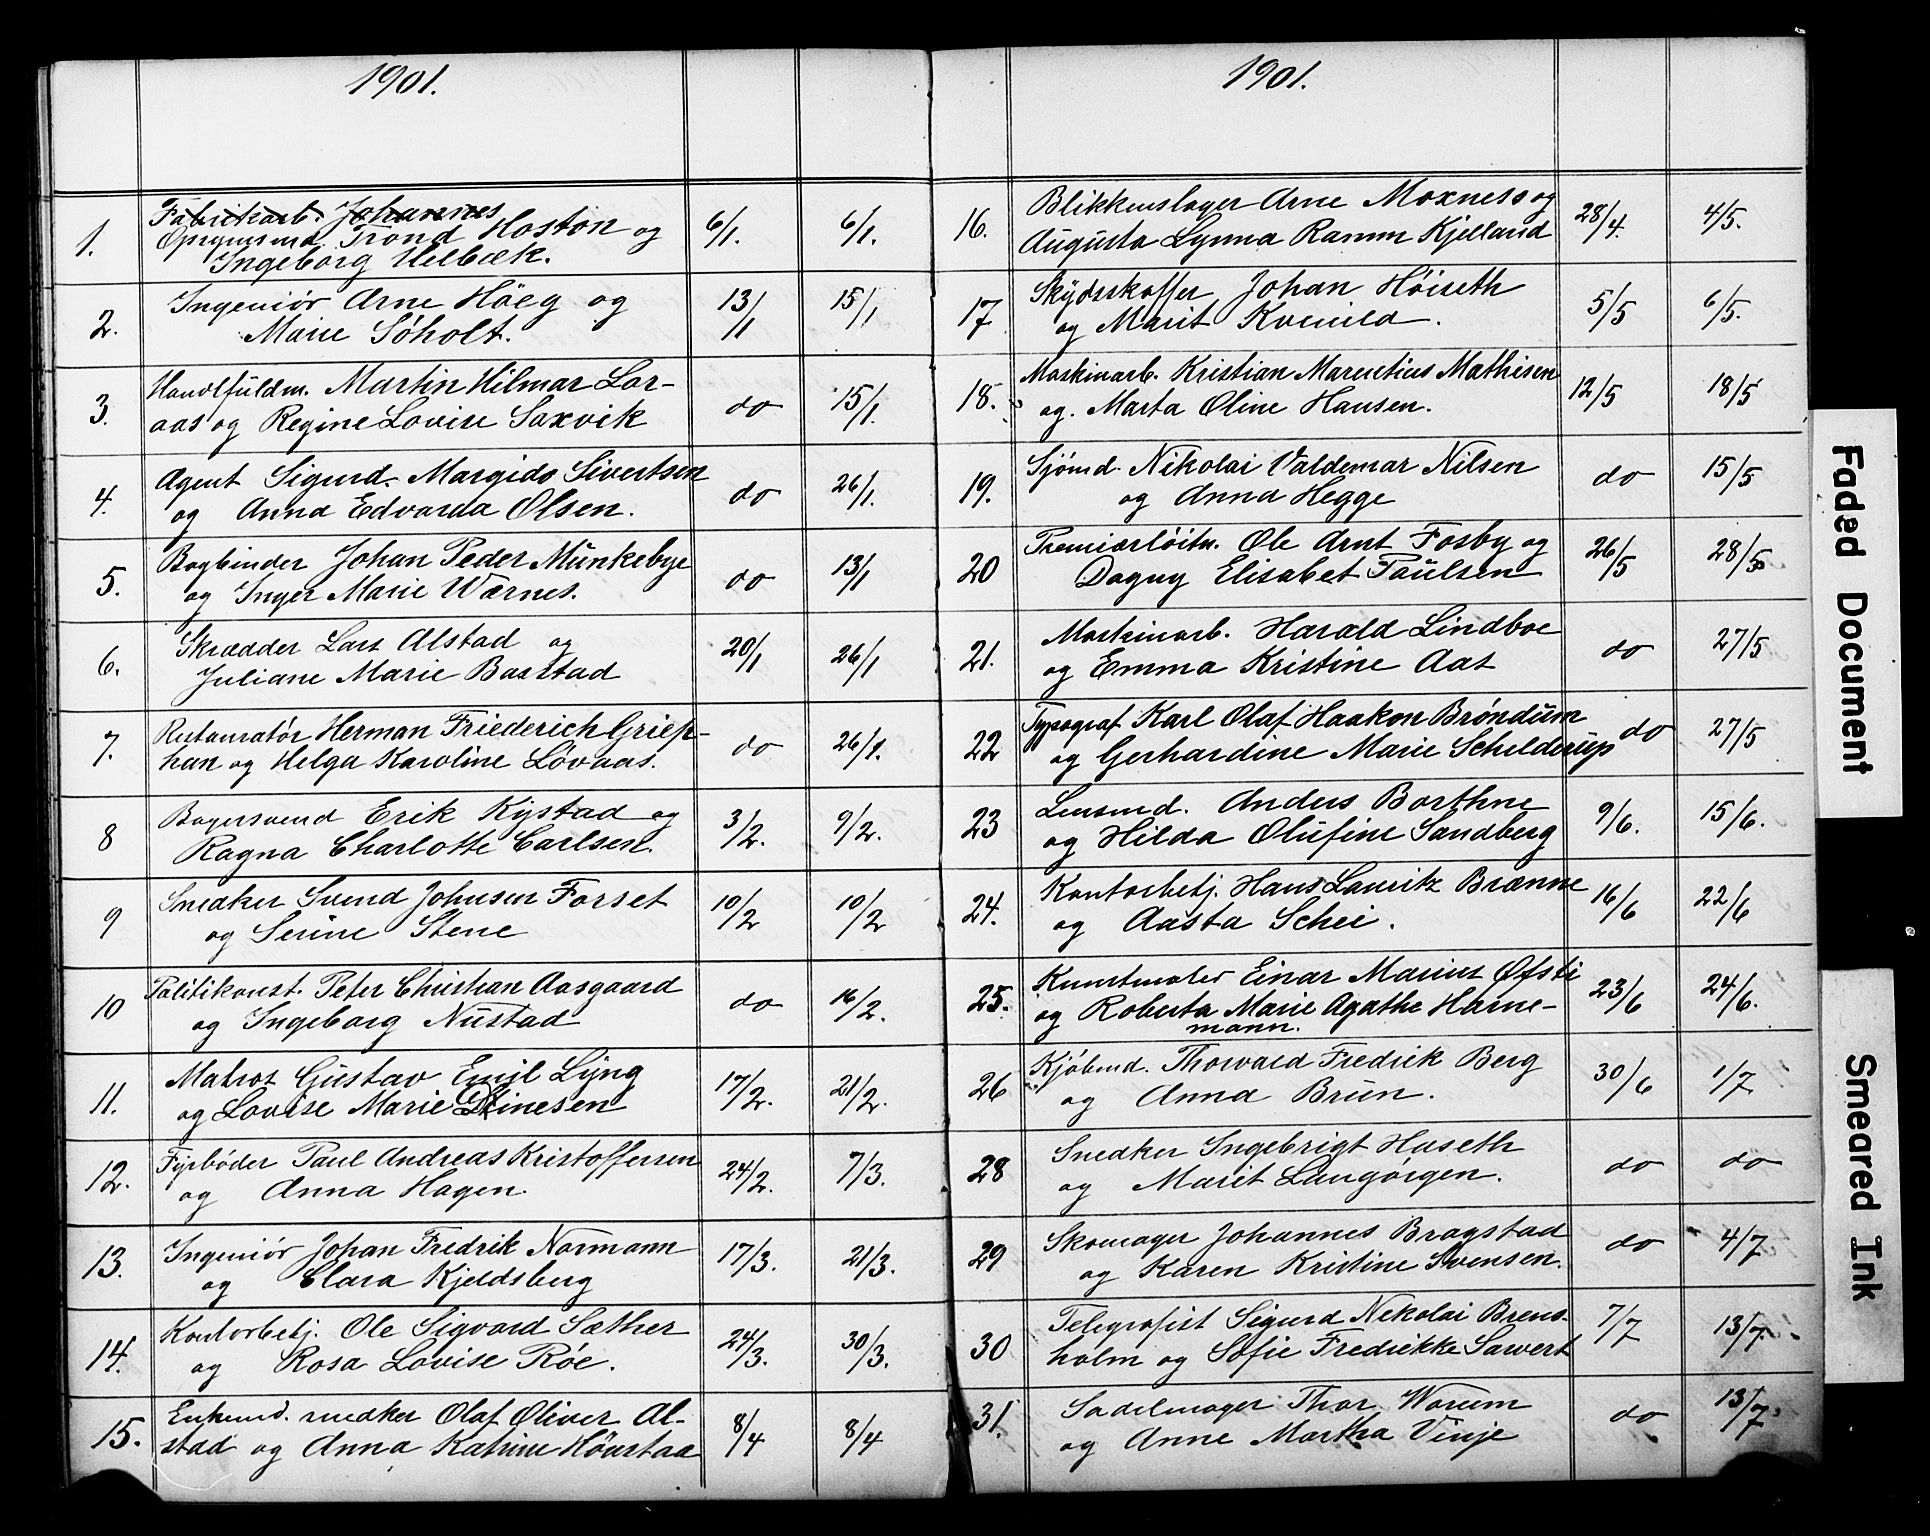 1901.
1.
Fabrikarb. Johannes
Opsynsmd. Trond Hoston og
Ingeborg Velbæk.
6/1.
6/1.
2.
Ingeniör Arne Höeg og
Marie Söholt.
13/1
15/1
3.
Handlfuldm. Martin Hilmar Lor-
aas og Regine Lovise Saxvik
do
15/1.
4.
Agent Sigurd Margido Sivertsen
og Anna Edvarda Olsen.
do
26/1.
5.
Bogbinder Johan Peder Munkebye
og Inger Marie Wærnes.
do
13/1
6.
Skrædder Lars Alstad og
Juliane Marie Baastad
20/1
26/1
7.
Restauratör Herman Friederich Griep-
han og Helga Karoline Lövaas.
do
26/1.
8
Bagersvend Erik Rystad og
Ragna Charlotte Carlsen.
3/2.
9/2.
9
Snedker Svend Johnsen Forset
og Serine Stene
10/2
10/2
10
Politikonst. Peter Christian Aasgaard
og Ingeborg Nustad
do
16/2.
11.
Matros Gustav Emil Lyng
og Lovise Marie Dinesen
17/2.
21/2.
12.
Fyrböder Paul Andreas Kristoffersen
og Anna Hagen.
24/2.
7/3.
13.
Ingeniör Johan Fredrik Normann
og Clara Kjeldsberg
17/3.
21/3.
14.
Kontorbetj. Ole Sigvard Sæther
og Rosa Lovise Röe.
24/3.
30/3.
15.
Enkemd. snedker Olaf Oliver Al-
stad og Anna Katrine
8/4
8/4
1901.
16.
Blikkenslager Arne Moxness og
Augusta Lynna Ramm Kjelland
28/4.
4/5.
17
Skydsskaffer Johan Höiseth
og Marit Kvenild.
5/5
6/5.
18.
Maskinarb. Kristian Marentius Mathisen
og. Marta Oline Hansen.
12/5
18/5
19.
Sjömd. Nikolai Valdemar Nilsen
og Anna Hegge
do
15/5
20
Premierlöitn. Ole Arnt Fosby og
Dagny Elisabet Paulsen
26/5
28/5
21.
Maskinarb. Harald Lindboe
og Emma Kristine Aas
do
27/5
22
Typograf Karl Olaf Haakon Bröndum
og Gerhardine Marie Schilderup
do
27/5
23
Lensmd. Anders Borthne
og Hilda Olufine Sandberg
9/6.
15/6.
24.
Kontorbetj. Hans Lauritz Brænne
og Aasta Schei.
16/6
22/6
25.
Kunstmaler Einar Marius Øfsti
og Roberta Marie Agathe Harne-
mann.
23/6
24/6.
26
Kjöbmd. Thorvard Fredrik Berg
og Anna Brun.
30/6
1/7.
28
Snedker Ingebrigt Huseth
og Marit Langörgen.
do
do
29
Skomager Johannes Bragstad
og Karen Kristine Svensen.
do
4/7
30
Telegrafist Sigurd Nekolai Brens-
holm og Sofie Fredrikke Sawert
7/7
13/7
31.
Sadelmager Thor Worum
og Anne Martha Vinje
do
13/7
Faded Document
Smeared Ink